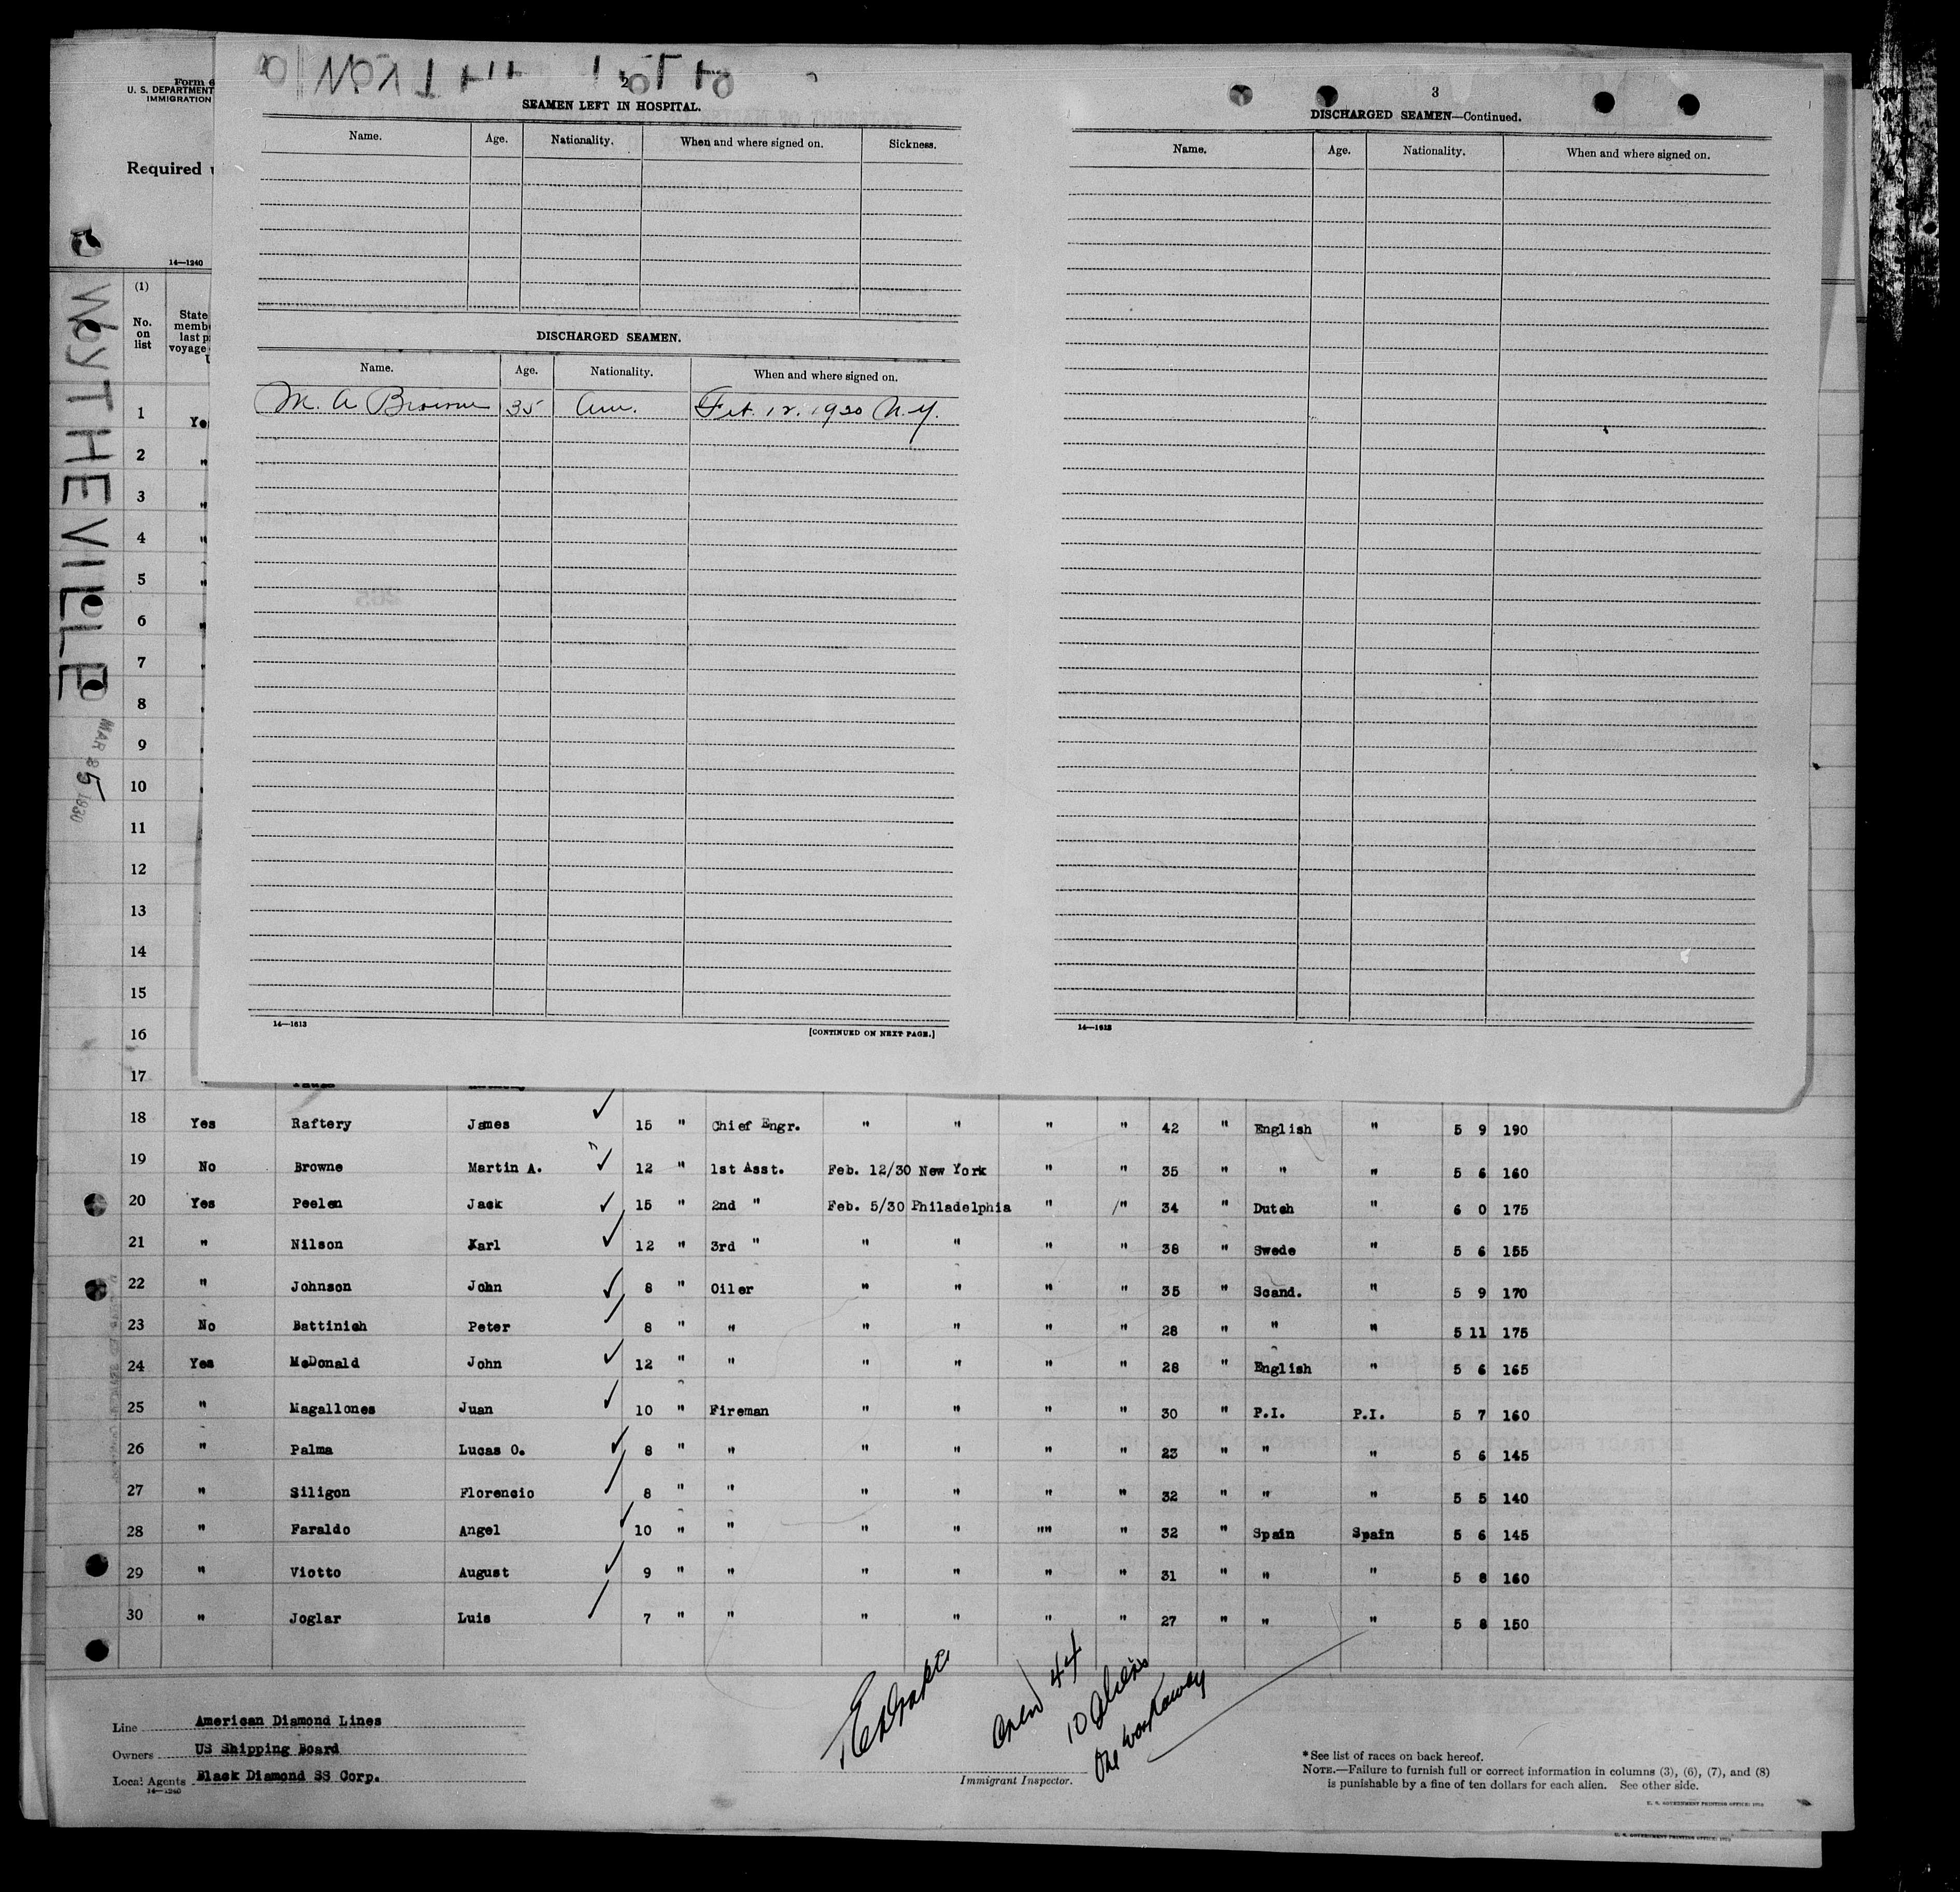 Form 6
U. S. DEPARTMENT
IMMIGRATION
Required
14—1240
WYTHEVILLE
MAR 5 1930
(1)
No. on list
State
memb
last p
voyage
2
SEAMEN LEFT IN HOSPITAL.
Name. Age. Nationality. When and where signed on. Sickness.
DISCHARGED SEAMEN.
Name. Age. Nationality. When and where signed on.
M. A Browne 35 Am. Feb. 12. 1930 N.Y.
14—1613
[CONTINUED ON NEXT PAGE.]
3
DISCHARGED SEAMEN—Continued.
Name. Age. Nationality. When and where signed on.
14—1613
1 Yes
2 "
3 "
4 "
5 "
6 "
7 "
8 "
9 "
10 "
11
12
13
14
15
16
17
18 Yes Raftery James 15 " Chief Engr. " " " " 42 " English " 5 9 190
19 No Browne Martin A. 12 " 1st Asst. Feb. 12/30 New York " " 35 " " " 5 6 160
20 Yes Peelen Jack 15 " 2nd " Feb. 5/30 Philadelphia " " 34 " Dutch " 6 0 175
21 " Nilson Karl 12 " 3rd " " " " " 38 " Swede " 5 6 155
22 " Johnson John 8 " Oiler " " " " 35 " Scand. " 5 9 170
23 No Battinich Peter 8 " " " " " " 28 " " " 5 11 175
24 Yes McDonald John 12 " " " " " " 28 " English " 5 6 165
25 " Magallones Juan 10 " Fireman " " " " 30 " P.I. P.I. 5 7 160
26 " Palma Lucas O. 8 " " " " " " 23 " " " 5 6 145
27 " Siligon Florencio 8 " " " " " " 32 " " " 5 5 140
28 " Faraldo Angel 10 " " " " "" " 32 " Spain Spain 5 6 145
29 " Viotto August 9 " " " " " " 31 " " " 5 8 160
30 " Joglar Luis 7 " " " " " " 27 " " " 5 8 150
Crew 44
10 Aliens
One workaway
Line American Diamond Lines
Owners US Shipping Board
Local Agents Black Diamond SS Corp.
14—1240
Immigrant Inspector.
* See list of races on back hereof.
NOTE.—Failure to furnish full or correct information in columns (3), (6), (7), and (8)
is punishable by a fine of ten dollars for each alien. See other side.